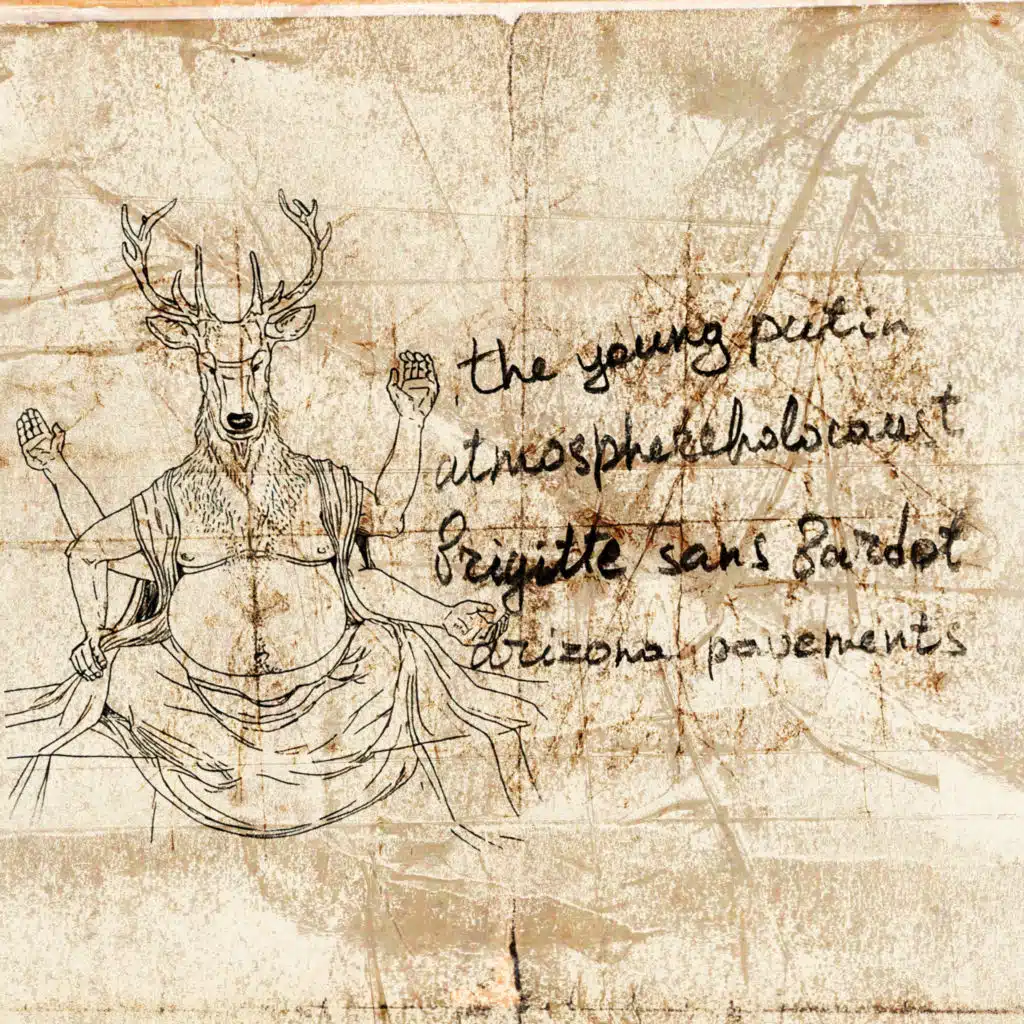 the young putin
atmosphereholocaust
Brigitte sans Bardot
arizona pavements